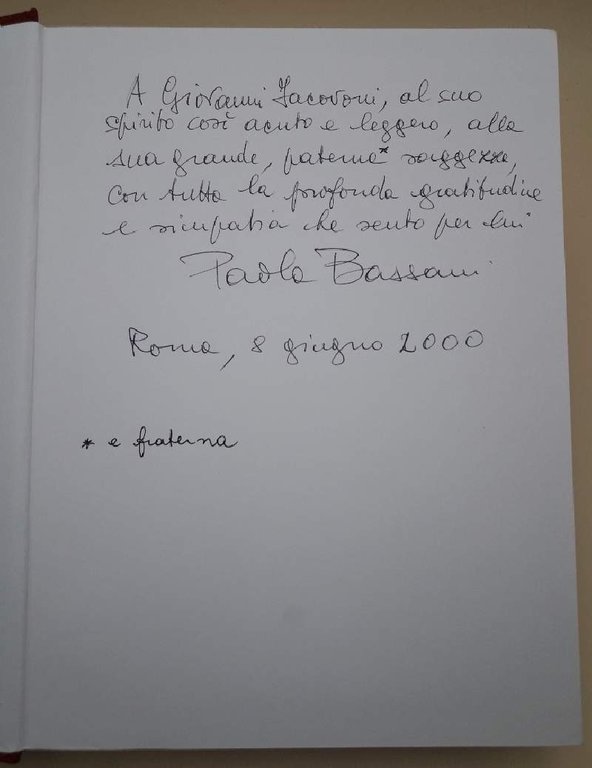 A Giovanni Iacovoni, al suo
spirito così acuto e leggero, alla
sua grande, paterna* saggezza,
con tutta la profonda gratitudine
e simpatia che sento per lui
Paola Bassani
Roma, 8 giugno 2000
* e fraterna